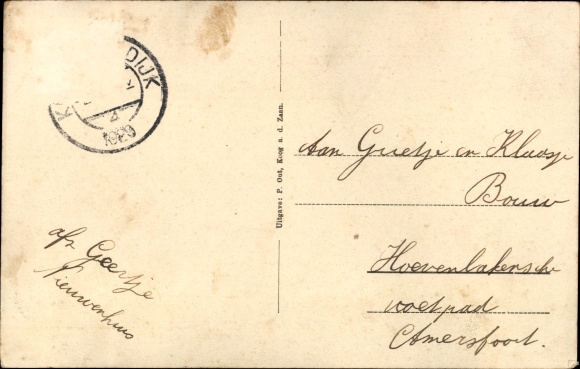 DIJK
1929
Uitgave: P. Out, Koog a. d. Zaan.
Aan Grietje en Klaasje
Bouw
Hoevenlakensche
voetpad
Amersfoort.
afz Geertje
Nieuwenhuis